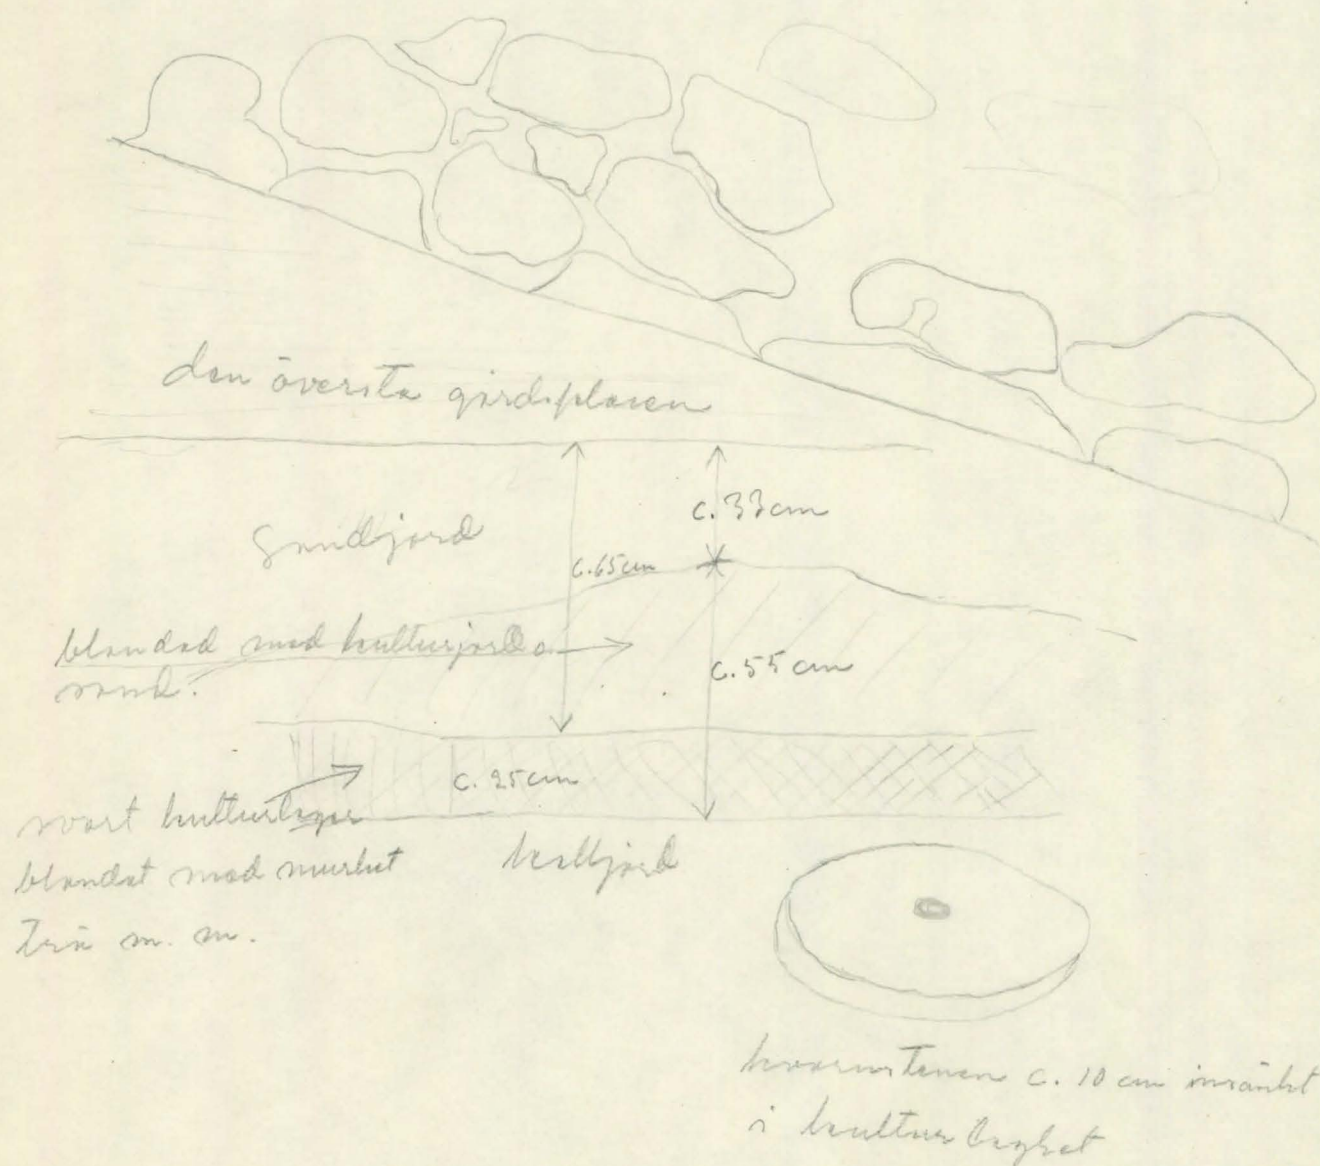 den översta gårdsplanen
c. 33 cm
Sandjord
c. 65 cm
blandad med kulturjord o.
sand.
c. 55 cm
c. 25 cm
svart kulturlager
blandat med murket
trä m. m.
kalljord
kvarnstenen c. 10 cm insänkt
i kulturlagret